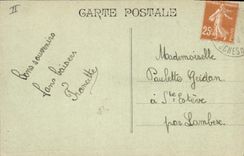 II
CARTE POSTALE
25c
Bons souvenirs
Sans baisers
Francette
Mademoiselle
Paulette Guidon
à Ste Estève
par Lambesc